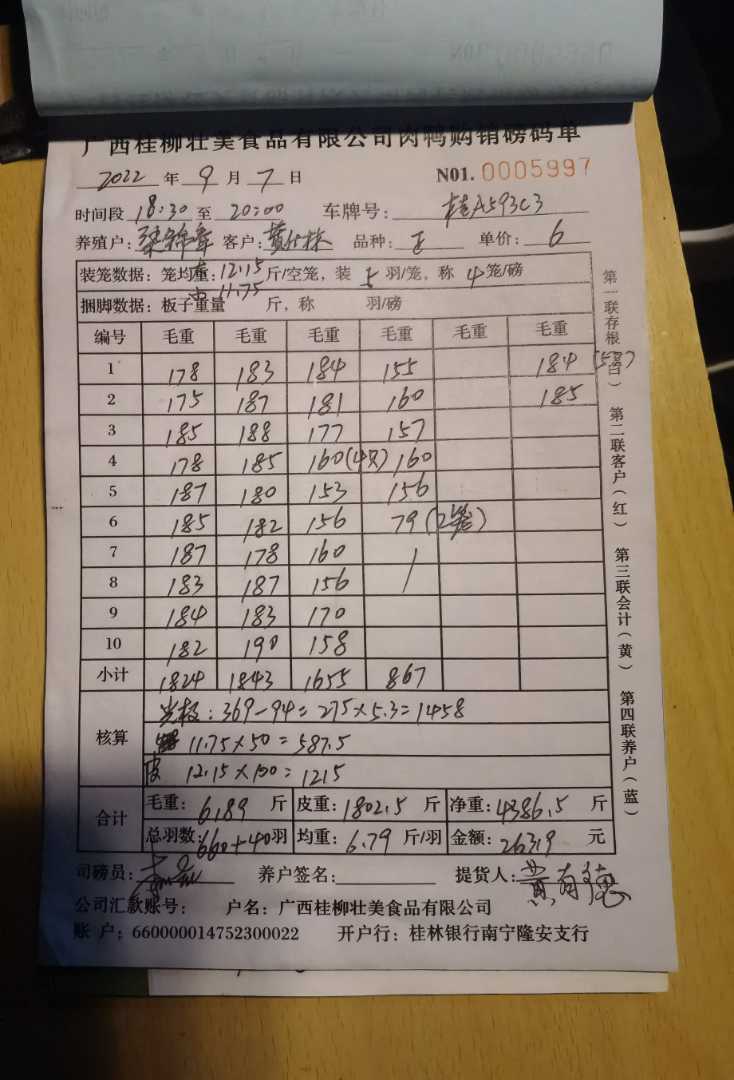 广西桂柳壮美食品有限公司肉鸭购销磅码单
2022 年 9 月 7 日 N01. 0005997
时间段 18:30 至 20:00 车牌号: 桂A593C3
养殖户: 客户: 品种: 正 单价: 6
装笼数据: 笼均重: 12.15 斤/空笼, 装 5 羽/笼, 称 4 笼/磅
11.75
捆脚数据: 板子重量 斤, 称 羽/磅
编号 毛重 毛重 毛重 毛重 毛重 毛重
1 178 183 184 155 184 (58)
2 175 187 181 160 185
3 185 188 177 157
4 178 185 160(4只) 160
5 187 180 153 156
6 185 182 156 79 (2笼)
7 187 178 160
8 183 187 156
9 184 183 170
10 182 190 158
小计 1824 1843 1655 867
核算 : 369-94=275×5.3=1458
11.75×50=587.5
皮 12.15×100=1215
合计 毛重: 6189 斤 皮重: 1802.5 斤 净重: 4386.5 斤
总羽数: 660+40羽 均重: 6.79 斤/羽 金额: 26319 元
司磅员: 养户签名: 提货人: 黄有德
公司汇款账号: 户名: 广西桂柳壮美食品有限公司
账 户: 660000014752300022 开户行: 桂林银行南宁隆安支行
第一联存根(白) 第二联客户(红) 第三联会计(黄) 第四联养户(蓝)